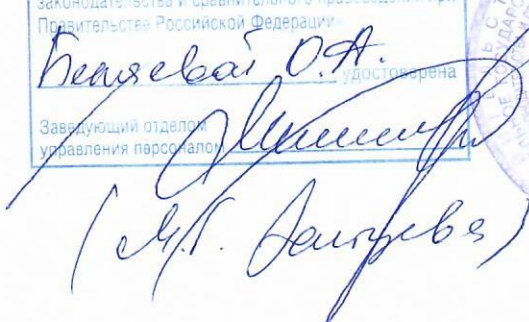 законодательства и сравнительного правоведения при
Правительстве Российской Федерации
Беляевой О.А. удостоверена
Заведующий отделом
управления персоналом
(М.Г.